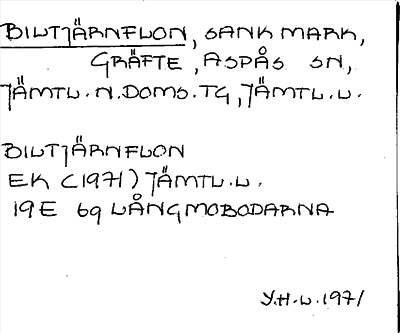 BILTJÄRNFLON, SANK MARK,
GRÄFTE, ASPÅS SN,
JÄMTL. N. DOMS. TG, JÄMTL. L.
BILTJÄRNFLON
EK (1971) JÄMTL. L.
19E 6g LÅNGMOBODARNA
Y.H-L. 1971